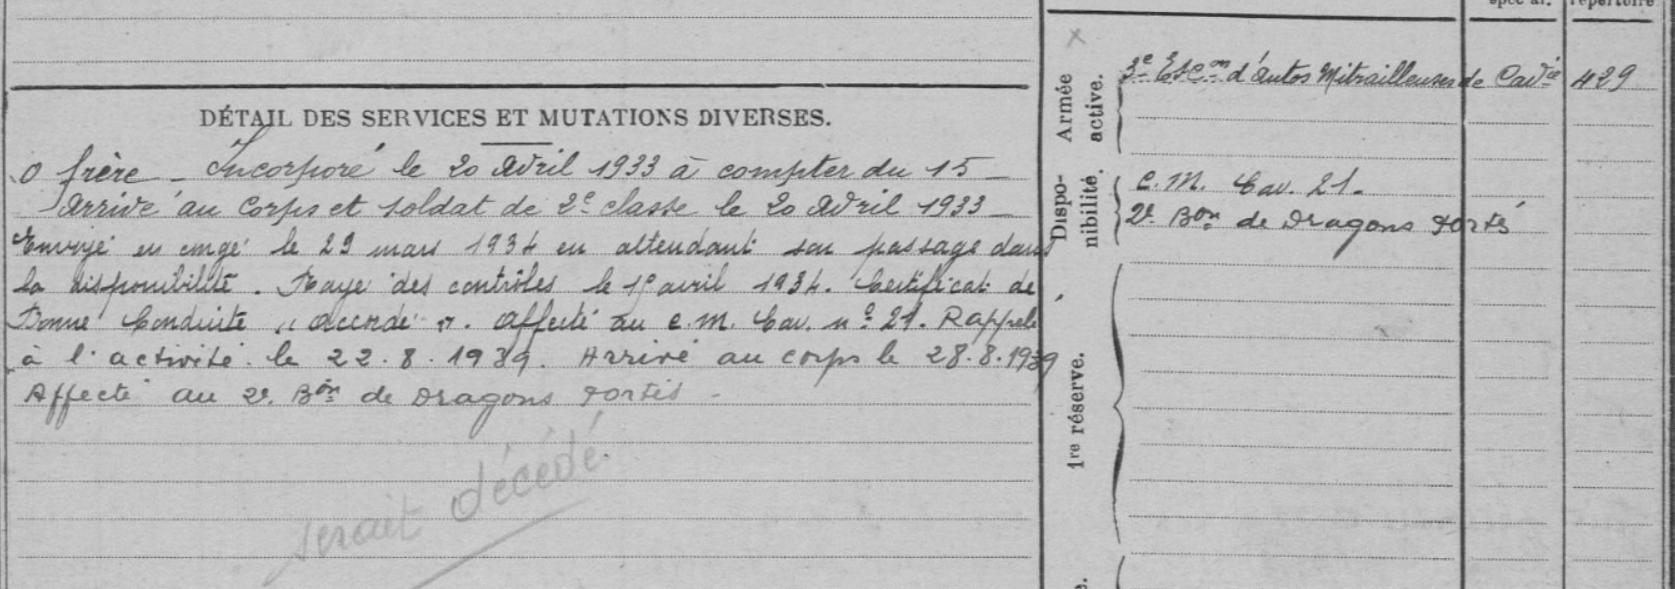 DÉTAIL DES SERVICES ET MUTATIONS DIVERSES.
0 frère - Incorporé le 20 Avril 1933 à compter du 15 -
Arrivé au Corps et soldat de 2e classe le 20 Avril 1933 -
Envoyé en congé le 29 mars 1934 en attendant son passage dans
la disponibilité. Rayé des contrôles le 15 avril 1934. Certificat de
Bonne Conduite "accordé". Affecté au C.M. Cav. no 21. Rappelé
à l'activité le 22.8.1939. Arrivé au corps le 28.8.1939
Affecté au 2e Bon de Dragons Portés -
serait décédé.
spécial.
répertoire
Armée active.
3e Escon d'Autos Mitrailleuses de Cavie 429
Disponibilité.
C.M. Cav. 21.
2e Bon de Dragons Portés
1re réserve.